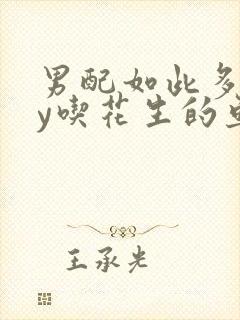 男配如此多
y喫花生的
王承光